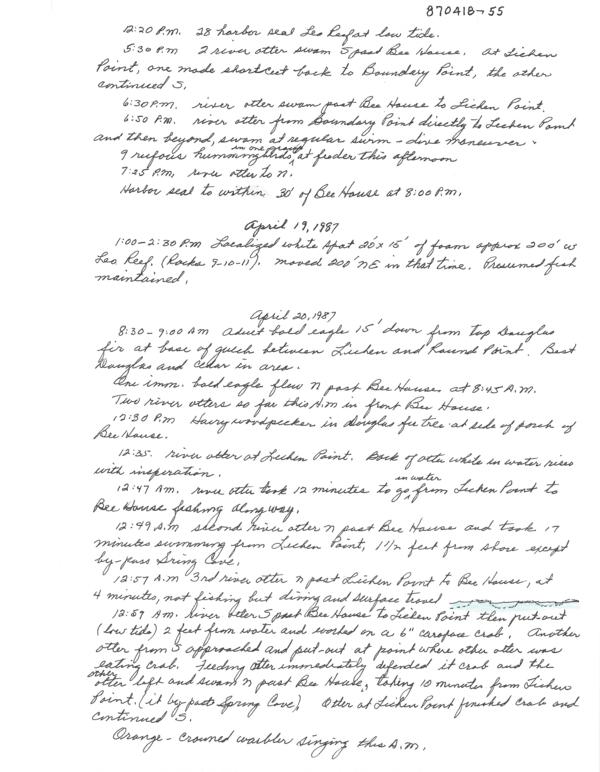 870418-55
12:20 P.M. 28 harbor seal Leo Reef at low tide.
5:30 P.M 2 river otter swam S past Bee House. At Lichen
Point, one made shortcut back to Boundary Point, the other
continued S.
6:30 P.M. river otter swam past Bee House to Lichen Point.
6:50 P.M. river otter from Boundary Point directly to Lichen Point
and then beyond, swam at regular swim - dive maneuver.
9 rufous hummingbirds in one group at feeder this afternoon
7:25 P.M, river otter to N.
Harbor seal to within 30' of Bee House at 8:00 P.M.
April 19, 1987
1:00-2:30 P.M Localized white spot 20' x 15' of foam approx 200' W
Leo Reef. (Rocks 9-10-11). moved 200' NE in that time. Presumed fish
maintained.
April 20, 1987
8:30 - 9:00 AM Adult bald eagle 15' down from top Douglas
fir at base of gulch between Lichen and Round Point. Best
Douglas and Cedar in area.
One imm. bald eagle flew N past Bee House at 8:45 A.M.
Two river otters so far this A.M in front Bee House.
12:30 P.M Hairy woodpecker in Douglas fir tree at side of porch of
Bee House.
12:35. river otter at Lichen Point. Back of otter white in water rises
with inspiration.
12:47 AM. river otter took 12 minutes to go in water from Lichen Point to
Bee House fishing along way.
12:49 A.M second river otter N past Bee House and took 17
minutes swimming from Lichen Point, 1 1/2 feet from shore except
by-pass Spring Cove.
12:57 A.M 3rd river otter N past Lichen Point to Bee House, at
4 minutes, not fishing but diving and surface travel
12:59 AM. River otter S past Bee House to Lichen Point then put-out
(low tide) 2 feet from water and worked on a 6" carapace crab. Another
otter from S approached and put-out at point where other otter was
eating crab. Feeding otter immediately defended it crab and the
other otter left and swam N past Bee House, taking 10 minutes from Lichen
Point. (it by-past Spring Cove). Otter at Lichen Point finished crab and
continued S.
Orange-crowned warbler singing this A.M.